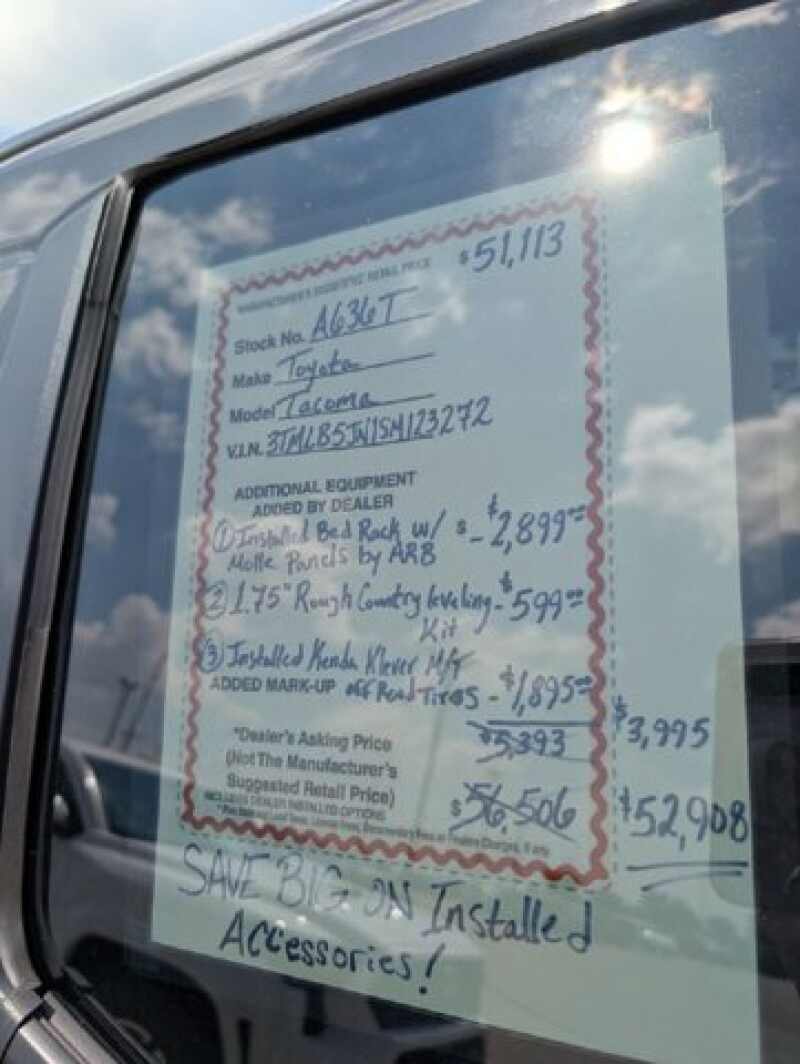 MANUFACTURER'S SUGGESTED RETAIL PRICE $51,113
Stock No. A636T
Make Toyota
Model Tacoma
V.I.N. 3TMLB5JN1SM123272
ADDITIONAL EQUIPMENT
ADDED BY DEALER
① Installed Bed Rack w/ $ - $2,899.00
Molle Panels by ARB
② 1.75" Rough Country leveling - $599.00
Kit
③ Installed Kenda Klever M/T
ADDED MARK-UP off Road Tires - $1,895.00
$5,393 $3,995
*Dealer's Asking Price
(Not The Manufacturer's
Suggested Retail Price)
$56,506 $52,908
INCLUDES DEALER INSTALLED OPTIONS
SAVE BIG ON Installed
Accessories!